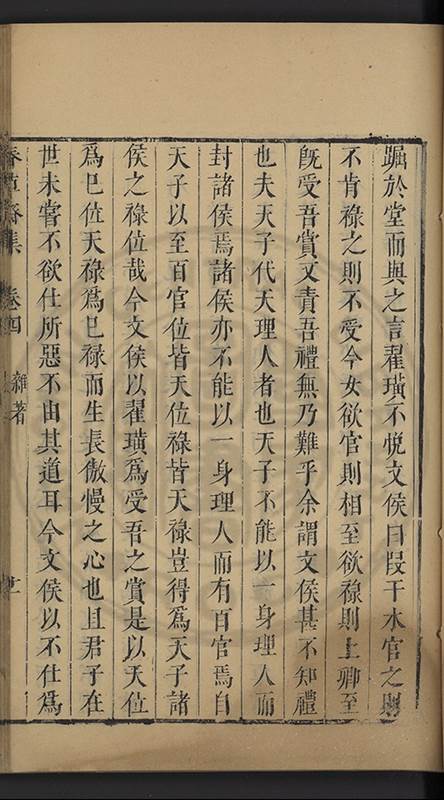 踞於堂而與之言翟璜不悅文侯曰段干木官之則
不肯祿之則不受今女欲官則相至欲祿則上卿至
旣受吾賞又責吾禮無乃難乎余謂文侯甚不知禮
也夫天子代天理人者也天子不能以一身理人而
封諸侯焉諸侯亦不能以一身理人而有百官焉自
天子以至百官位皆天位祿皆天祿豈得爲天子諸
侯之祿位哉今文侯以翟璜爲受吾之賞是以天位
爲己位天祿爲己祿而生長傲慢之心也且君子在
世未嘗不欲仕所惡不由其道耳今文侯以不仕爲
集 卷四 雜著